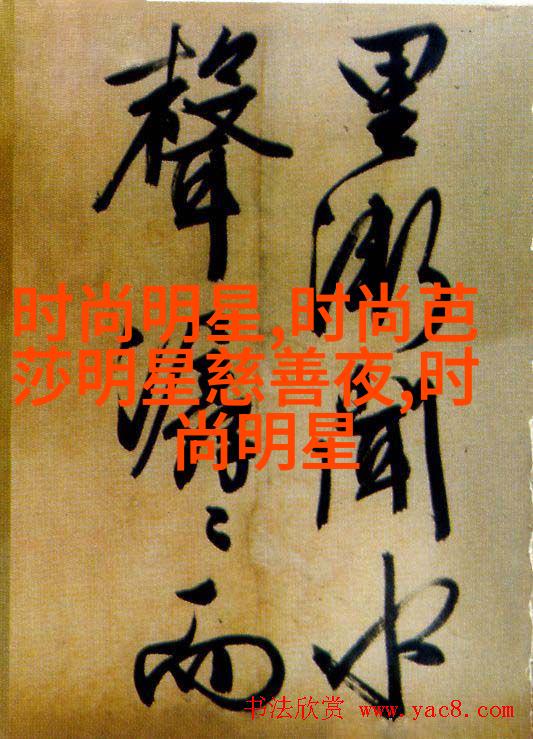 里漸聞水
聲潺〻而
时尚明星,时尚芭
莎明星慈善夜,时
尚明星
书法欣赏 www.yac8.com